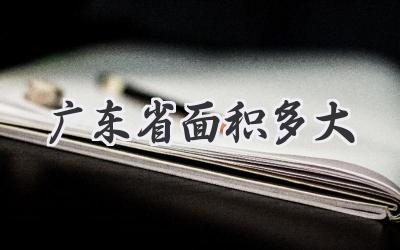 广东省面积多大